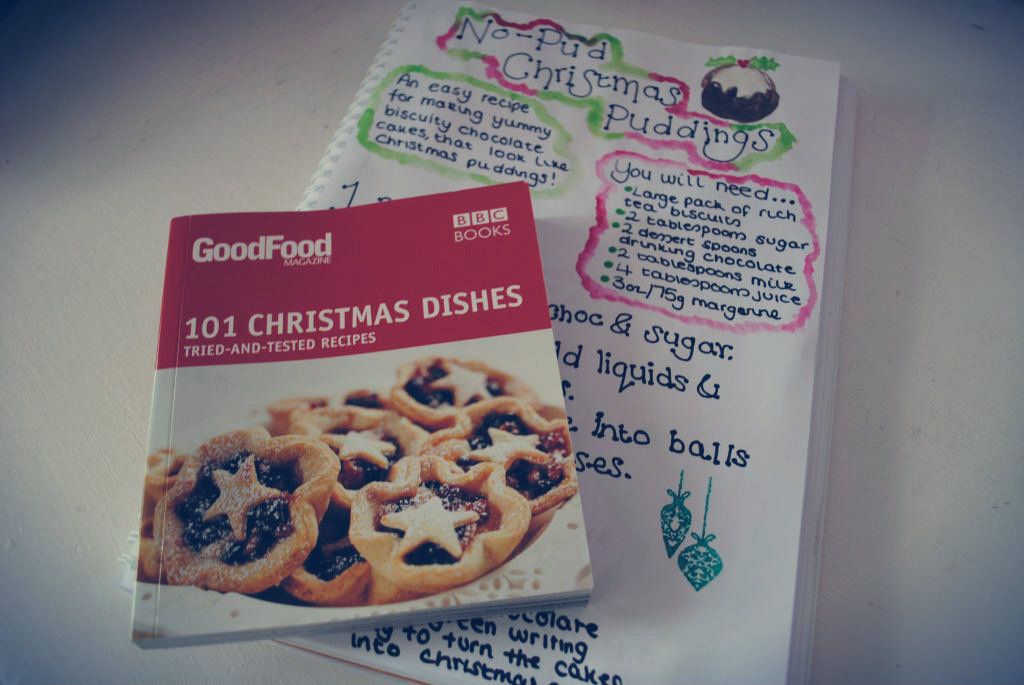 No-Pud
Christmas
Puddings
An easy recipe
for making yummy
biscuity chocolate
cakes, that look like
Christmas puddings!
You will need...
Large pack of rich
tea biscuits
2 tablespoons sugar
2 dessert spoons
drinking chocolate
2 tablespoons milk
4 tablespoons juice
3oz/75g margerine
1
choc & sugar.
liquids &
into balls
writing
to turn the cakes
into Christmas
GoodFood
MAGAZINE
BBC
BOOKS
101 CHRISTMAS DISHES
TRIED-AND-TESTED RECIPES